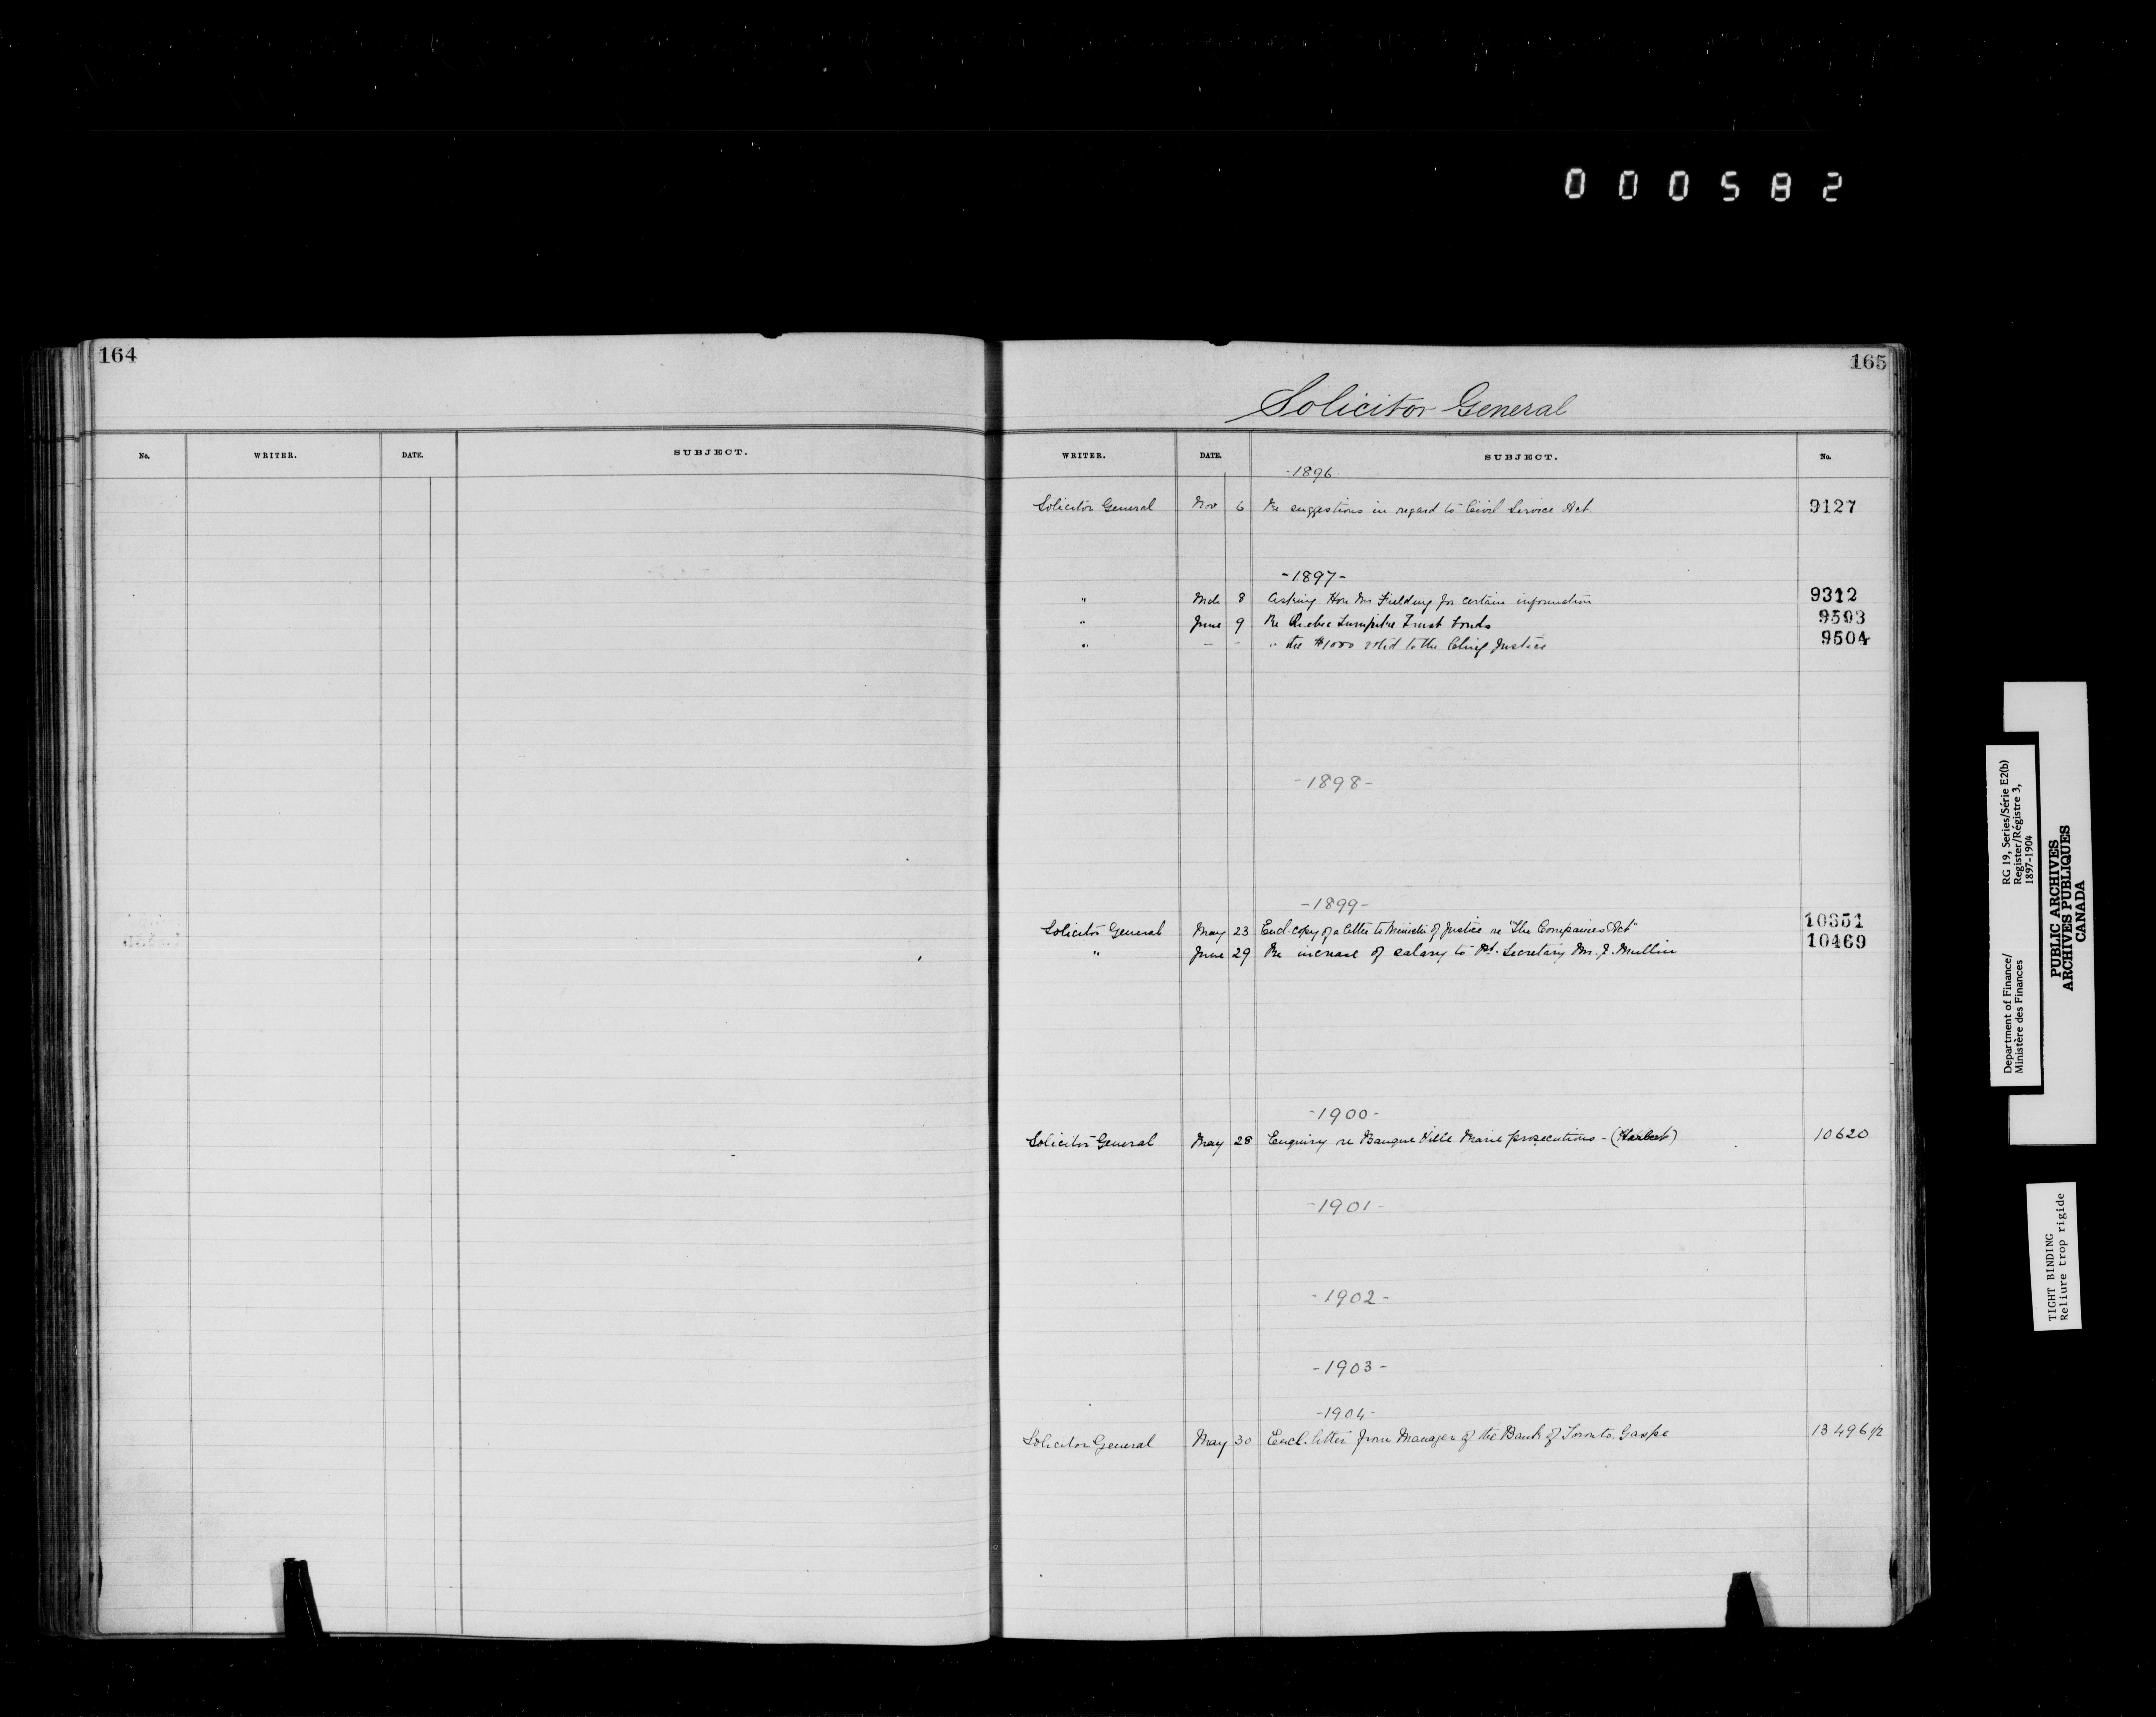 000582
164
No. WRITER. DATE. SUBJECT.
165
Solicitor General
WRITER. DATE. SUBJECT. No.
-1896-
Solicitor General Nov 6 Re suggestions in regard to Civil Service Act 9127
-1897-
" Mch 8 Asking Hon Mr Fielding for certain information 9312
" June 9 Re Quebec Turnpike Trust Fonds 9503
" - - " the $1000 vot'd to the Chief Justice 9504
-1898-
-1899-
Solicitor General May 23 Encl. copy of a letter to Minister of Justice re "The Companies Act" 10351
" June 29 Re increase of salary to Pt. Secretary Mr. J. Mullin 10469
-1900-
Solicitor General May 28 Enquiry re Banque Ville Marie prosecutions - 10620
-1901-
-1902-
-1903-
-1904-
Solicitor General May 30 Encl. letter from Manager of the Bank of Toronto Gaspe 13496 1/2
Department of Finance/ RG 19, Series/Série E2(b)
Ministère des Finances Register/Régistre 3,
1897-1904
PUBLIC ARCHIVES
ARCHIVES PUBLIQUES
CANADA
TIGHT BINDING
Reliure trop rigide